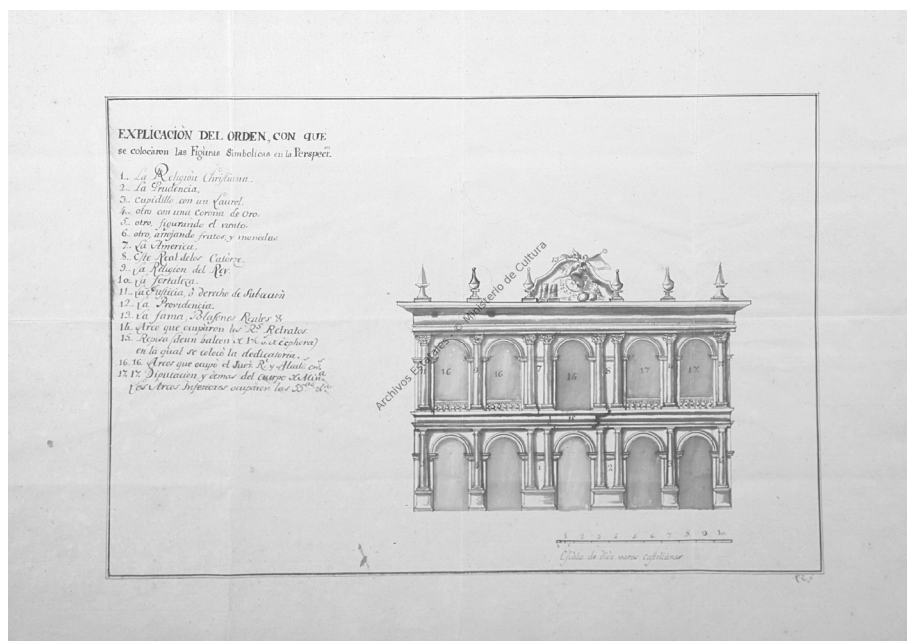 EXPLICACIÒN DEL ORDEN, CON QUE
se colocaron las Figuras Simbolicas en la Perspec.
1.. La Religion Christiana.
2.. La Prudencia,
3.. Cupidillo con un Laurel.
4.. otro con una Corona de Oro.
5.. otro, figurando el viento.
6.. otro, arrojando frutos, y monedas
7.. La America.
8.. Este Real de los Catorze.
9.. La Religion del Rey.
10. La fortaleza.
11. La Justicia, ò derecho de
12. La Providencia.
13. La fama, Blasones Reales &
14. Arco que ocuparon los Rs. Retratos.
15. Repisa (de un balcon
en la qual se colocò la dedicatoria.
16. 16. Arcos que ocupò el y
17. 17. Diputacion, y demas del Cuerpo
Los Arcos Inferiores ocuparon las
13
16 16 16 17 17
1 2
1 2 3 4 5 6 7 8 9 10
Escala de diez varas castellanas
Archivos Estatales · © Ministerio de Cultura